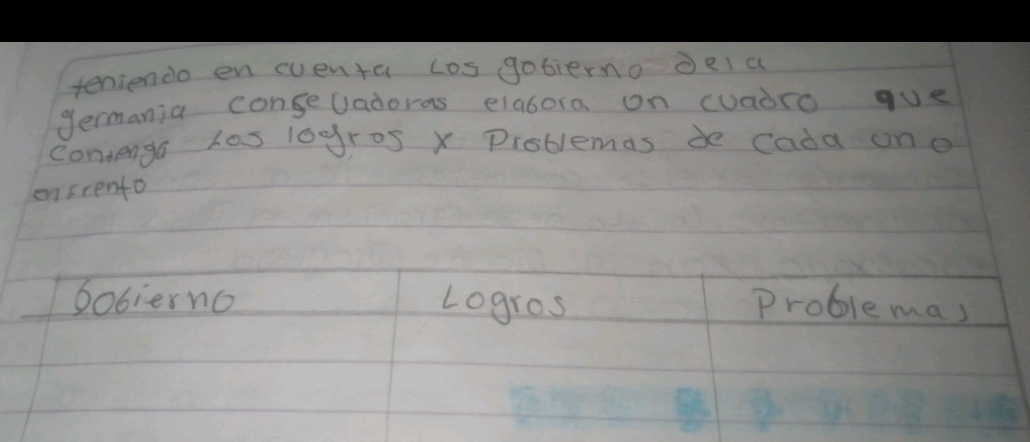 teniendo en cuenta Los gobierno dela
germania conseuadoras elabora un cuadro que
contenga Los logros x Problemas de cada uno
enfrento
Gobierno Logros Problemas